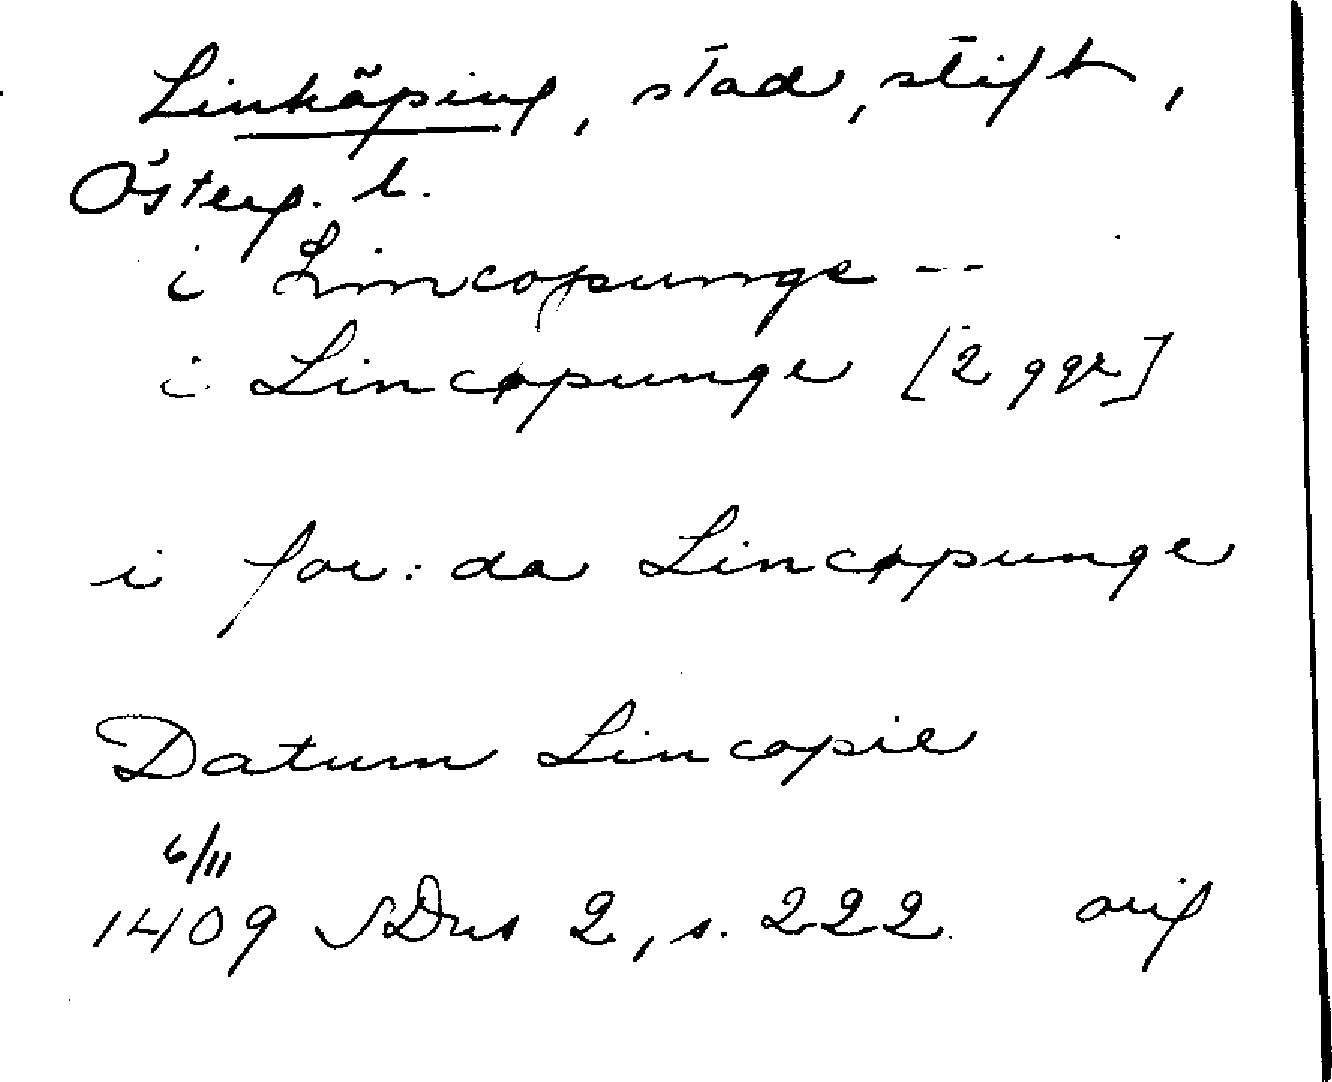 Linköping, stad, stift,
Österg. l.
i Limcopunge --
i Lincopunge [2 ggr]
i for: da Lincopunge
Datum Lincopie
6/11
1409 SDns 2, s. 222. orig